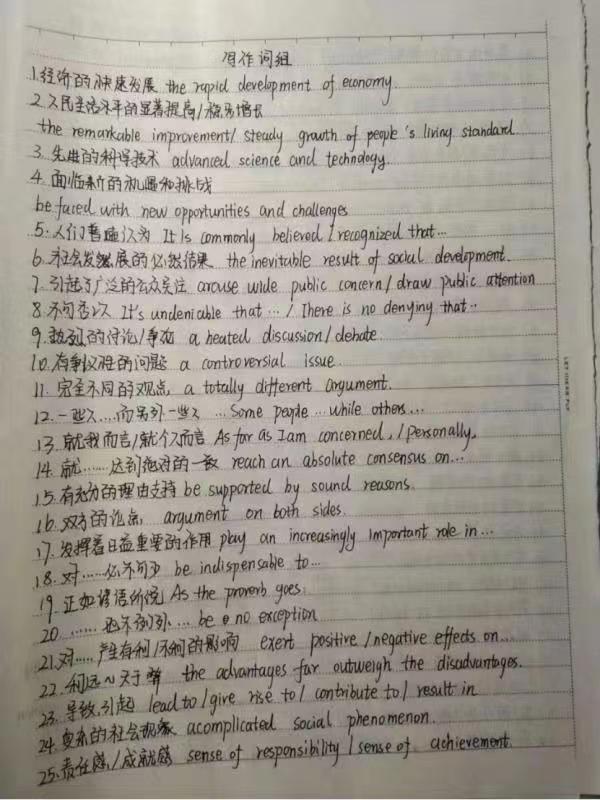 写作词组
1.经济的快速发展 the rapid development of economy.
2.人民生活水平的显著提高/稳步增长
the remarkable improvement/ steady growth of people's living standard.
3.先进的科学技术 advanced science and technology.
4.面临新的机遇和挑战
be faced with new opportunities and challenges
5.人们普遍认为 It Is commonly believed / recognized that...
6.社会发展的必然结果 the inevitable result of social development.
7.引起了广泛的公众关注 arouse wide public concern/ draw public attention
8.不可否认 It's undeniable that.../ There is no denying that..
9.热烈的讨论/争论 a heated discussion/ debate.
10.有争议性的问题 a controversial issue.
11.完全不同的观点 a totally different argument.
12.一些人....而另外一些人 ...Some people ...while others...
13.就我而言/就个人而言 As far as I am concerned, / personally,
14.就......达到绝对的一致 reach an absolute consensus on...
15.有充分的理由支持 be supported by sound reasons.
16.双方的论点 argument on both sides.
17.发挥着日益重要的作用 play an increasingly important role in...
18.对......必不可少 be indispensable to...
19.正如谚语所说 As the proverb goes:
20.......也不例外... be no exception
21.对.....产生有利/不利的影响 exert positive/negative effects on...
22.利远~大于弊 the advantages far outweigh the disadvantages.
23.导致,引起 lead to/ give rise to/ contribute to/ result in
24.复杂的社会现象 a complicated social phenomenon.
25.责任感/成就感 sense of responsibility / sense of achievement.